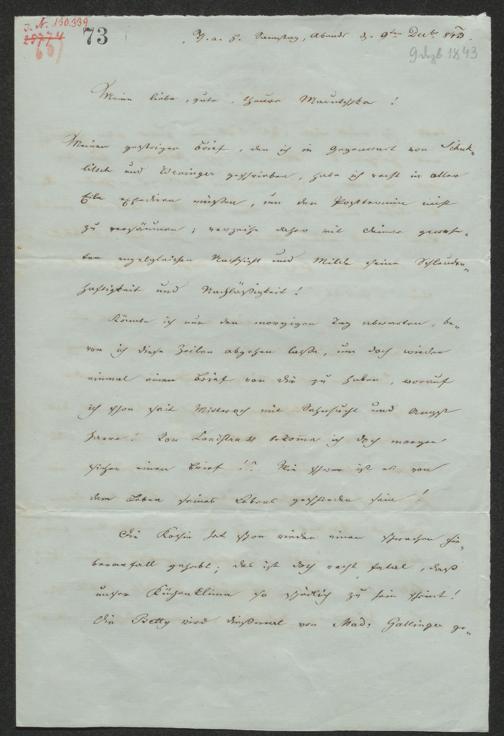 J. N. 130.339
73
Samstag, Abends d. 9ten Decb.
9 dezb 1843
Meine liebe, gute, theure Mautschka!
Meinen gestrigen Brief, den ich in Gegenwart von
litsch und Weninger geschrieben, habe ich recht in aller
Eile expediren müssen, um den Posttermin nicht
zu versäumen; verzeihe daher mit Deiner gewohn-
ten engelgleichen Nachsicht und Milde seine Schleuder-
haftigkeit und Nachlässigkeit!
Könnte ich nur den morgigen Tag abwarten, be-
vor ich diese Zeilen abgehen lasse, um doch wieder
einmal einen Brief von Dir zu haben, worauf
ich schon seit Mittwoch mit Sehnsucht und Angst
harre! Von bekomme ich doch morgen
sicher einen Brief!? Wie schwer ist es, von
dem Leben seines Lebens geschieden sein!
Die Köchin hat schon wieder einen schwachen Fie-
beranfall gehabt; das ist doch recht fatal, daß
unser Küchenklima so schädlich zu sein scheint!
Die Betty wird dießmal von Mad. Gallinger ge-